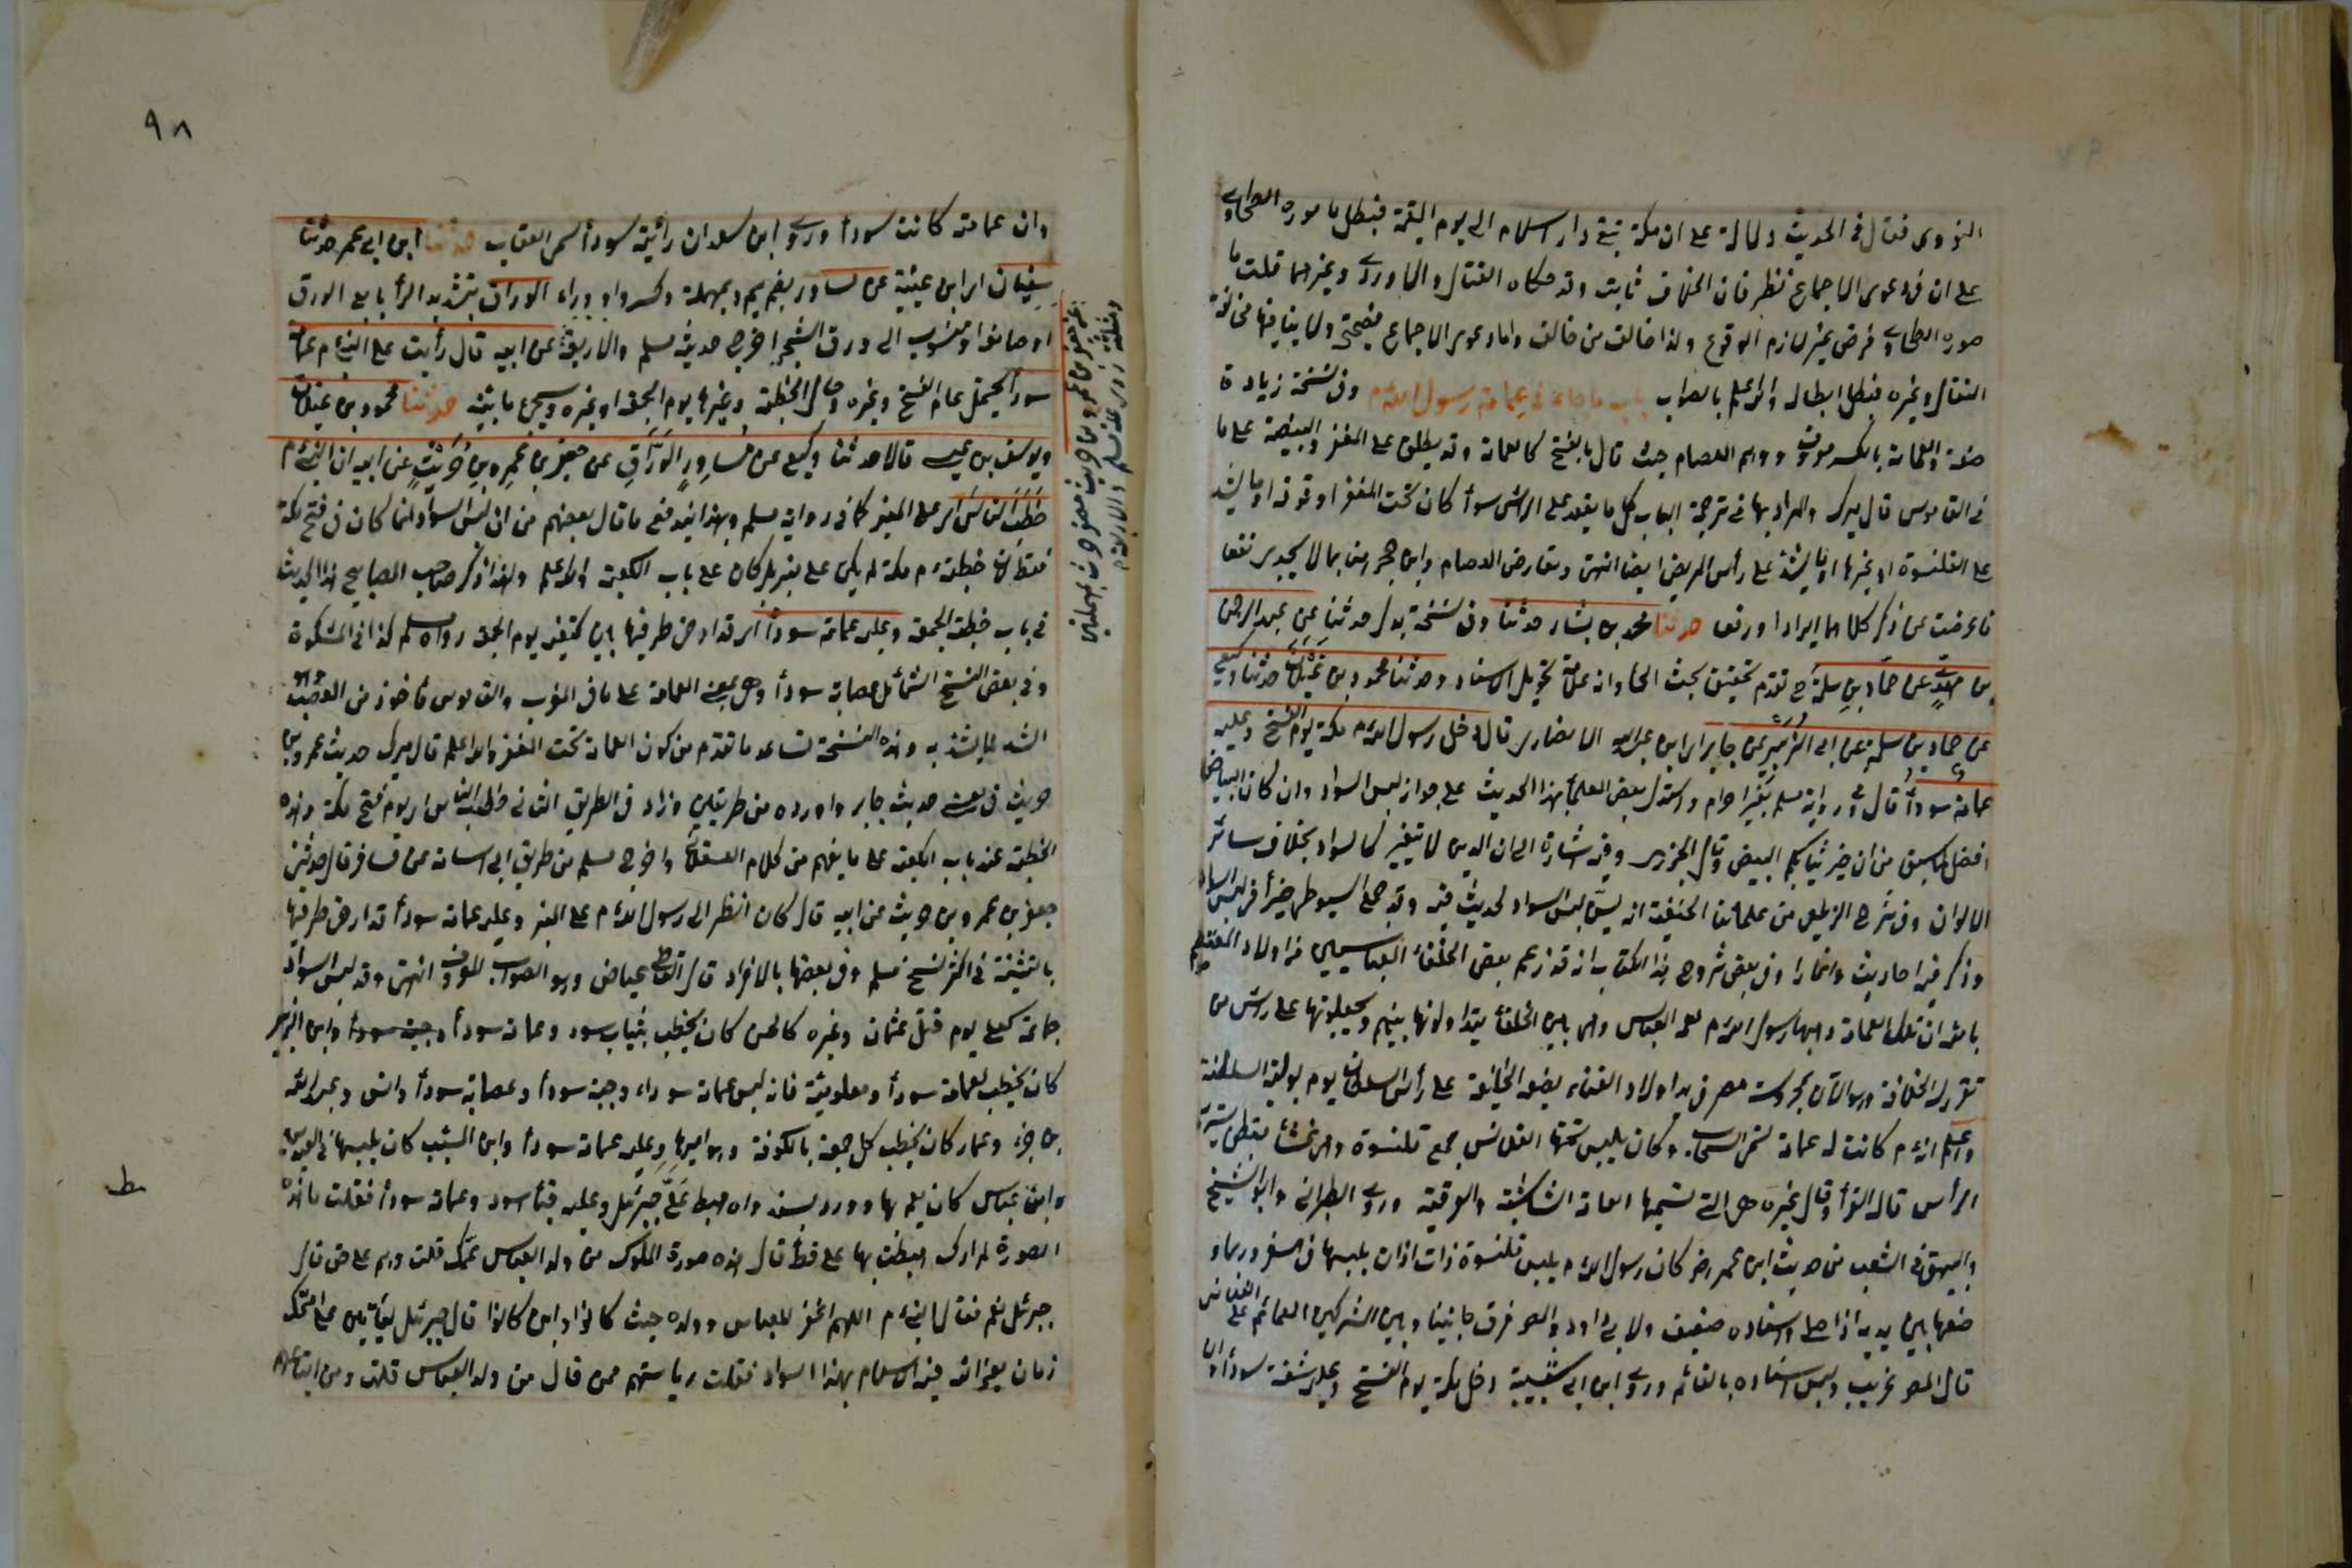 النووي فقال في الحديث دلالة على ان مكة تبقى دار اسلام الى يوم القيمة فبطل ما صوره الطحاوي
على ان في دعوى الاجماع نظر فان الخلاف ثابت وقد حكاه القفال والماوردي وغيرهما قلت ما
صوره الطحاوي فرض غير لازم الوقوع ولذا خالف من خالف واما دعوى الاجماع فصحيحة ولا ينافيها مخالفة
القفال وغيره فبطل ابطاله والله اعلم بالصواب باب ما جاء في عمامة رسول الله م وفي نسخة زيادة
صفة والعمامة بالكسر معروف ووهم العصام حيث قال بالفتح كالغمامة وقد يطلق على المغفر والبيضة على ما
في القاموس قال ميرك والمراد بها في ترجمة الباب كل ما يعقد على الرأس سواء كان تحت المغفر او فوقه او ما يشد
على القلنسوة او غيرها او ما يشد على رأس المريض ايضا انتهى وتعارض العصام وابن حجر هنا بما لا يجدي نفعا
فاعرضت عن ذكر كلامهما ايرادا ودفعا حدثنا محمد بن بشار حدثنا وفي نسخة بدل حدثنا عن عبد الرحمن
بن مهدي عن حماد بن سلمة ح تقدم تحقيق بحث الحاء وانه علامة تحويل الاسناد وحدثنا محمود بن غيلان حدثنا وكيع
عن حماد بن سلمة عن ابي الزبير عن جابر اي ابن عبد الله الانصاري قال دخل رسول الله م مكة يوم الفتح وعليه
عمامة سوداء قال وفي رواية مسلم بغير احرام واستدل بعض العلماء بهذا الحديث على جواز لبس السواد وان كان البياض
افضل لما سبق من ان خير ثيابكم البيض وقال الجزري وفيه اشارة الى ان الدين لا يتغير كالسواد بخلاف سائر
الالوان وفي شرح الزيلعي من علمائنا الحنفية انه يسن لبس السواد لحديث فيه وقد جمع السيوطي جزأ في لبس السواد
وذكر فيه احاديث واثارا وفي بعض شروح هذا الكتاب انه قد زعم بعض الخلفاء العباسيين من اولاد المعتصم
بالله ان تلك العمامة وهبها رسول الله م لعمه العباس وهي بين الخلفاء يتداولونها بينهم ويجعلونها على رأس من
تقرر له الخلافة وهو الآن بمحروسة مصر في يد اولاد الخلفاء يضعه الخليفة على رأس السلطان يوم تولية السلطنة
واعلم انه م كانت له عمامة تسمى السحاب وكان يلبس تحتها القلانس جمع قلنسوة وهي غشاء مبطن يستر به
الرأس قاله الفراء وقال غيره هي التي تسميها العامة الشاشية والعرقية وروى الطبراني وابو الشيخ
والبيهقي في الشعب من حديث ابن عمر رضي كان رسول الله م يلبس قلنسوة ذات اذان يلبسها في السفر وربما و
ضعها بين يديه اذا صلى واسناده ضعيف ولابي داود والمصر فرق ما بيننا وبين المشركين العمائم على القلانس
قال المصر غريب وليس اسناده بالقائم وروى ابن ابي شيبة دخل مكة يوم الفتح وعليه شقة سوداء
٩٨
وان عمامته كانت سوداء وروى ابن سعد ان رأيته سوداء تسمى العقاب حدثنا ابن ابي عمر حدثنا
سفيان اي ابن عيينة عن مساور بضم ميم وبمهملة وكسر واو وراء الوراق بتشديد الراء بايع الورق
او صانعه او منسوب الى ورق الشجر اخرج حديثه مسلم والاربعة عن ابيه قال رأيت على النبي م عمامة
سوداء يحتمل عام الفتح وغيره وحال الخطبة وغيرها يوم الجمعة او غيره وسيجيء ما يبينه حدثنا محمود بن غيلان
ويوسف بن عيسى قالا حدثنا وكيع عن مساور الوراق عن جعفر بن عمرو بن حريث عن ابيه ان النبي م
خطب الناس اي على المنبر كما في رواية مسلم وبهذا يندفع ما قال بعضهم من ان لبس السواد انما كان في فتح مكة
فقط لان خطبته م بمكة لم يكن على منبر بل كان على باب الكعبة والله اعلم ولهذا ذكر صاحب المصابيح هذا الحديث
في باب خطبة الجمعة وعليه عمامة سوداء اي قد ارخى طرفيها بين كتفيه يوم الجمعة رواه مسلم كذا في المشكوة
وفي بعض النسخ الشمائل عصابة سوداء وهي بمعنى العمامة على ما في المغرب والقاموس مأخوذ من العصب وهو
الشد لما يشد به وهذه النسخة تساعد ما تقدم من كون العمامة تحت المغفر والله اعلم قال ميرك حديث عمرو بن
حريث في معنى حديث جابر واورده من طريقين وزاد في الطريق الثاني خطب الناس اي يوم فتح مكة وهذه
الخطبة عند باب الكعبة على ما يفهم من كلام العسقلاني واخرج مسلم من طريق ابي اسامة عن مساور قال حدثني
جعفر بن عمرو بن حريث عن ابيه قال كأني انظر الى رسول الله م على المنبر وعليه عمامة سوداء قد ارخى طرفيها
بالتثنية في اكثر نسخ مسلم وفي بعضها بالافراد قال القاضي عياض وهو الصواب المعروف انتهى وقد لبس السواد
جماعة كعلي يوم قتل عثمان وغيره كالحسن كان يخطب بثياب سود وعمامة سوداء وجبة سوداء وابن الزبير
كان يخطب بعمامة سوداء ومعاوية فانه لبس عمامة سوداء وجبة سوداء وعصابة سوداء وانس وعبد الله
بن جزء وعمار كان يخطب كل جمعة بالكوفة وهو اميرها وعليه عمامة سوداء وابن المسيب كان يلبسها في العيدين
وابن عباس كان يعتم بها وورد بسند واه هبط علي جبرئيل وعليه قباء اسود وعمامة سوداء فقلت ما هذه
الصورة لم ارك هبطت بها علي قط قال هذه صورة الملوك من ولد العباس عمك قلت وهم على حق قال
جبرئيل نعم فقال النبي م اللهم اغفر للعباس وولده حيث كانوا واين كانوا قال جبرئيل ليأتين على امتك
زمان يعز الله فيه الاسلام بهذا السواد فقلت رياستهم ممن قال من ولد العباس قلت ومن اتباعهم